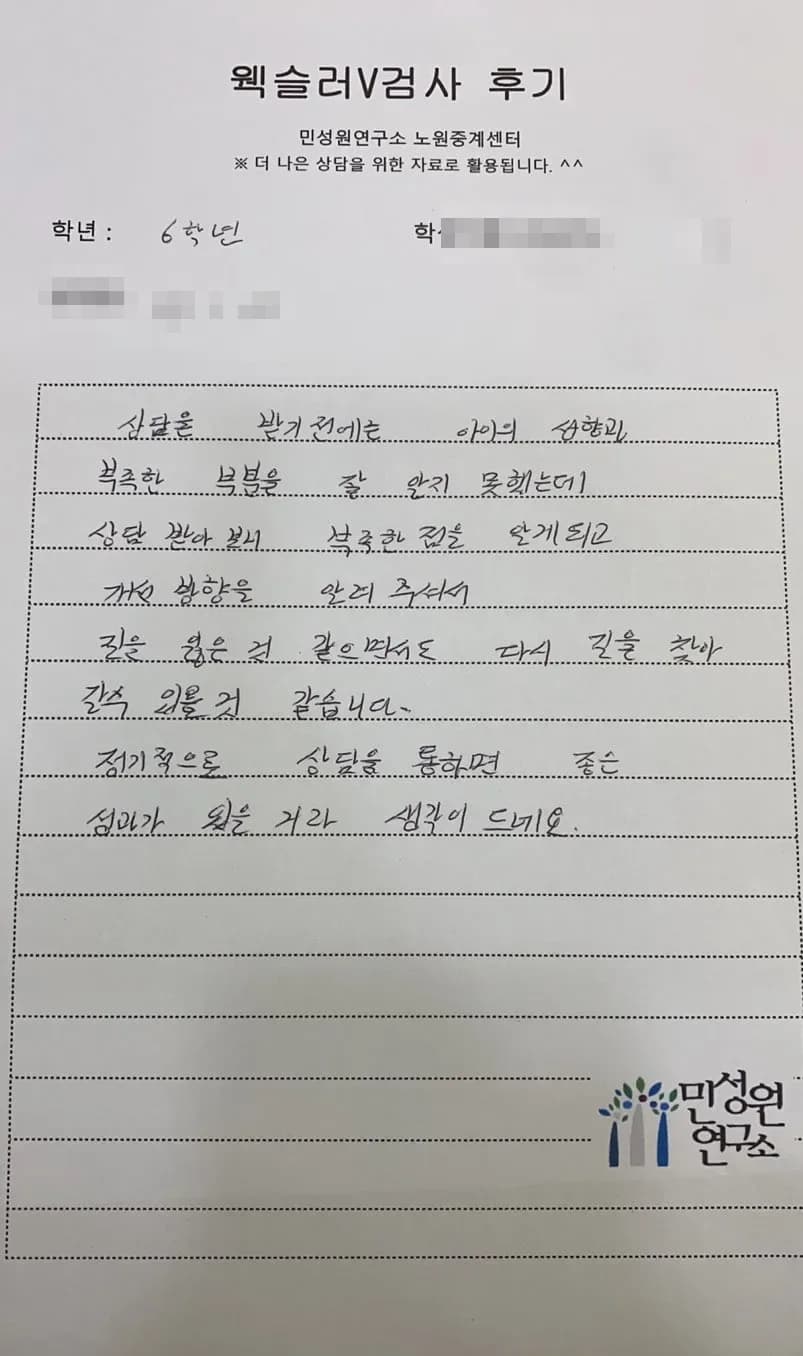 웩슬러V검사 후기
민성원연구소 노원중계센터
※ 더 나은 상담을 위한 자료로 활용됩니다. ^^
학년 : 6학년 학
상담을 받기전에는 아이의 성향과
부족한 부분을 잘 알지 못했는데
상담 받아 보니 부족한 점을 알게되고
개선 방향을 알려 주셔서
길을 잃은 것 같으면서도 다시 길을 찾아
갈수 있을 것 같습니다.
정기적으로 상담을 통하면 좋은
성과가 있을 거라 생각이 드네요.
민성원
연구소